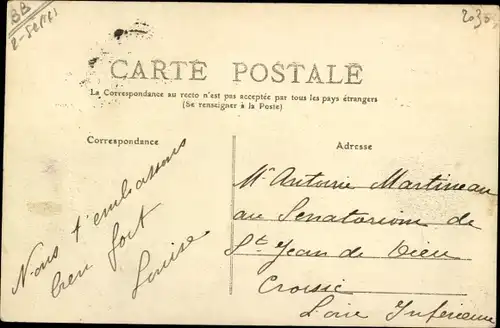 BB
2-Sepes
2030
CARTE POSTALE
La Correspondance au recto n'est pas acceptée par tous les pays étrangers
(Se renseigner à la Poste)
Correspondance
Nous t'embrassons
bien fort
Louise
Adresse
Mr Antoine Martineau
au Senatorium de
St Jean de Dieu
Croisic
Loire Inférieure